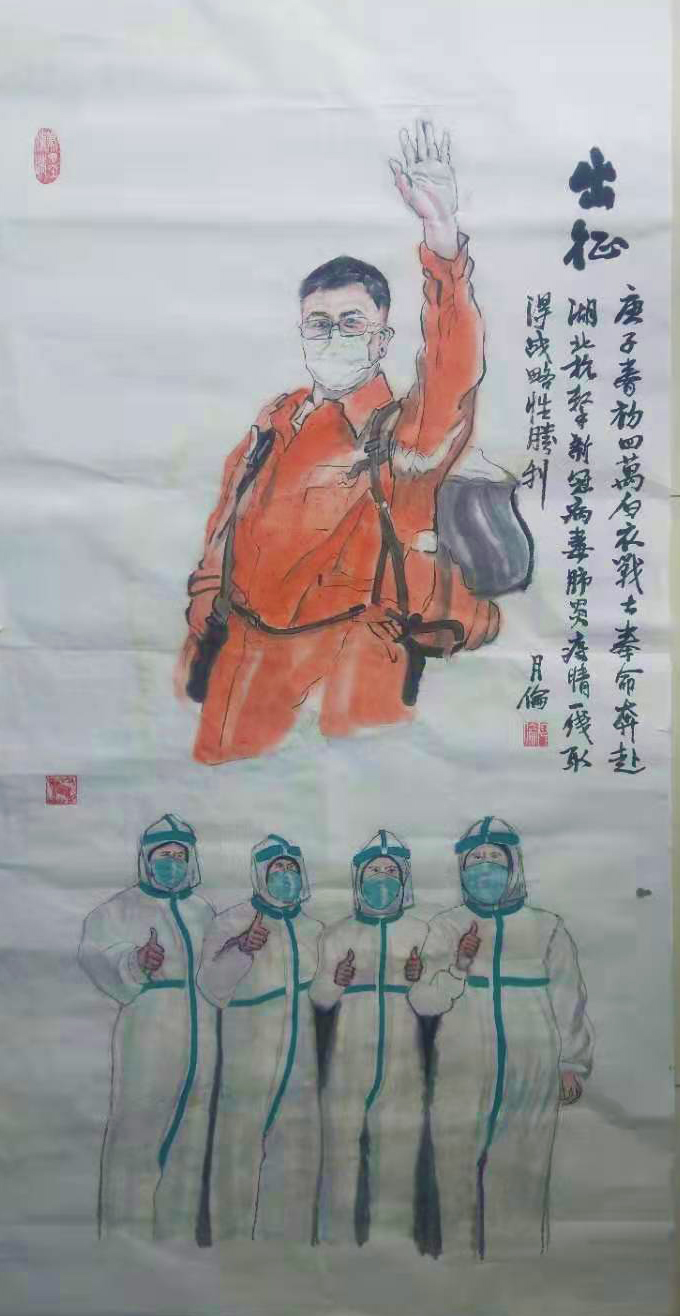 出征
庚子春初四萬白衣戰士奉命奔赴
湖北抗擊新冠病毒肺炎疫情一线取
得战略性勝利
月倫